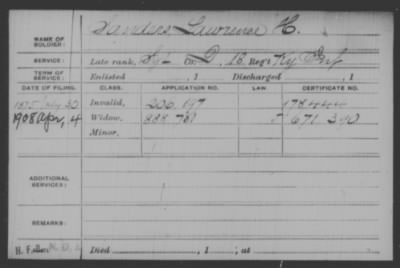 NAME OF SOLDIER: Sanders, Lawrence H.
SERVICE: Late rank, Sgt Co. D, 16 Reg't Ky Inf
TERM OF SERVICE: Enlisted , 1 Discharged , 1
DATE OF FILING. CLASS. APPLICATION NO. LAW. CERTIFICATE NO.
1875 July Invalid, 206 197 178444
1908 Apr, 4 Widow, 671 340
Minor,
ADDITIONAL SERVICES:
REMARKS:
Died , 1 , at